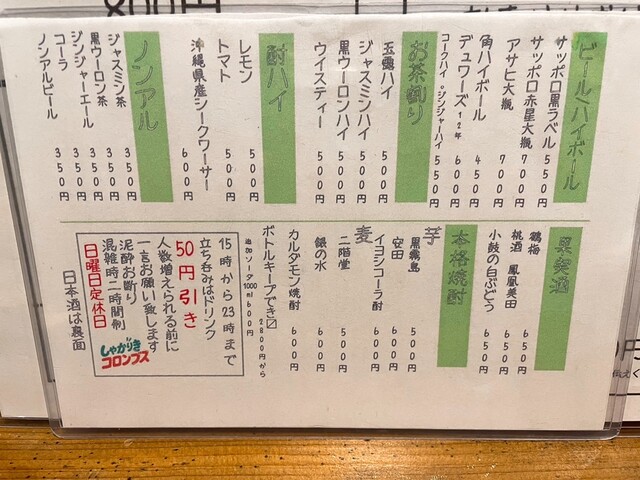 ビール/ハイボール
サッポロ黒ラベル 550円
サッポロ赤星大瓶 700円
アサヒ大瓶 700円
角ハイボール 450円
デュワーズ12年 600円
コークハイ・ジンジャーハイ 550円
お茶割り
玉露ハイ 500円
ジャスミンハイ 500円
黒ウーロンハイ 500円
ウイスティー 500円
酎ハイ
レモン 500円
トマト 500円
沖縄県産シークワーサー 600円
ノンアル
ジャスミン茶 350円
黒ウーロン茶 350円
ジンジャーエール 350円
コーラ 350円
ノンアルビール 350円
果実酒
鶴梅 650円
桃酒 鳳凰美田 650円
小鼓の白ぶどう 650円
本格焼酎
芋
黒霧島 500円
安田 600円
イヨシコーラ酎 600円
麦
二階堂 500円
銀の水 600円
カルダモン焼酎 600円
ボトルキープでき〼 2800円から
追加ソータ1000ml600円
15時から23時まで
立ち呑みはドリンク
50円引き
人数増えられる前に
一言お願い致します
泥酔お断り
混雑時二時間制
日曜日定休日
しゃかりき
コロンブス
日本酒は裏面
800円